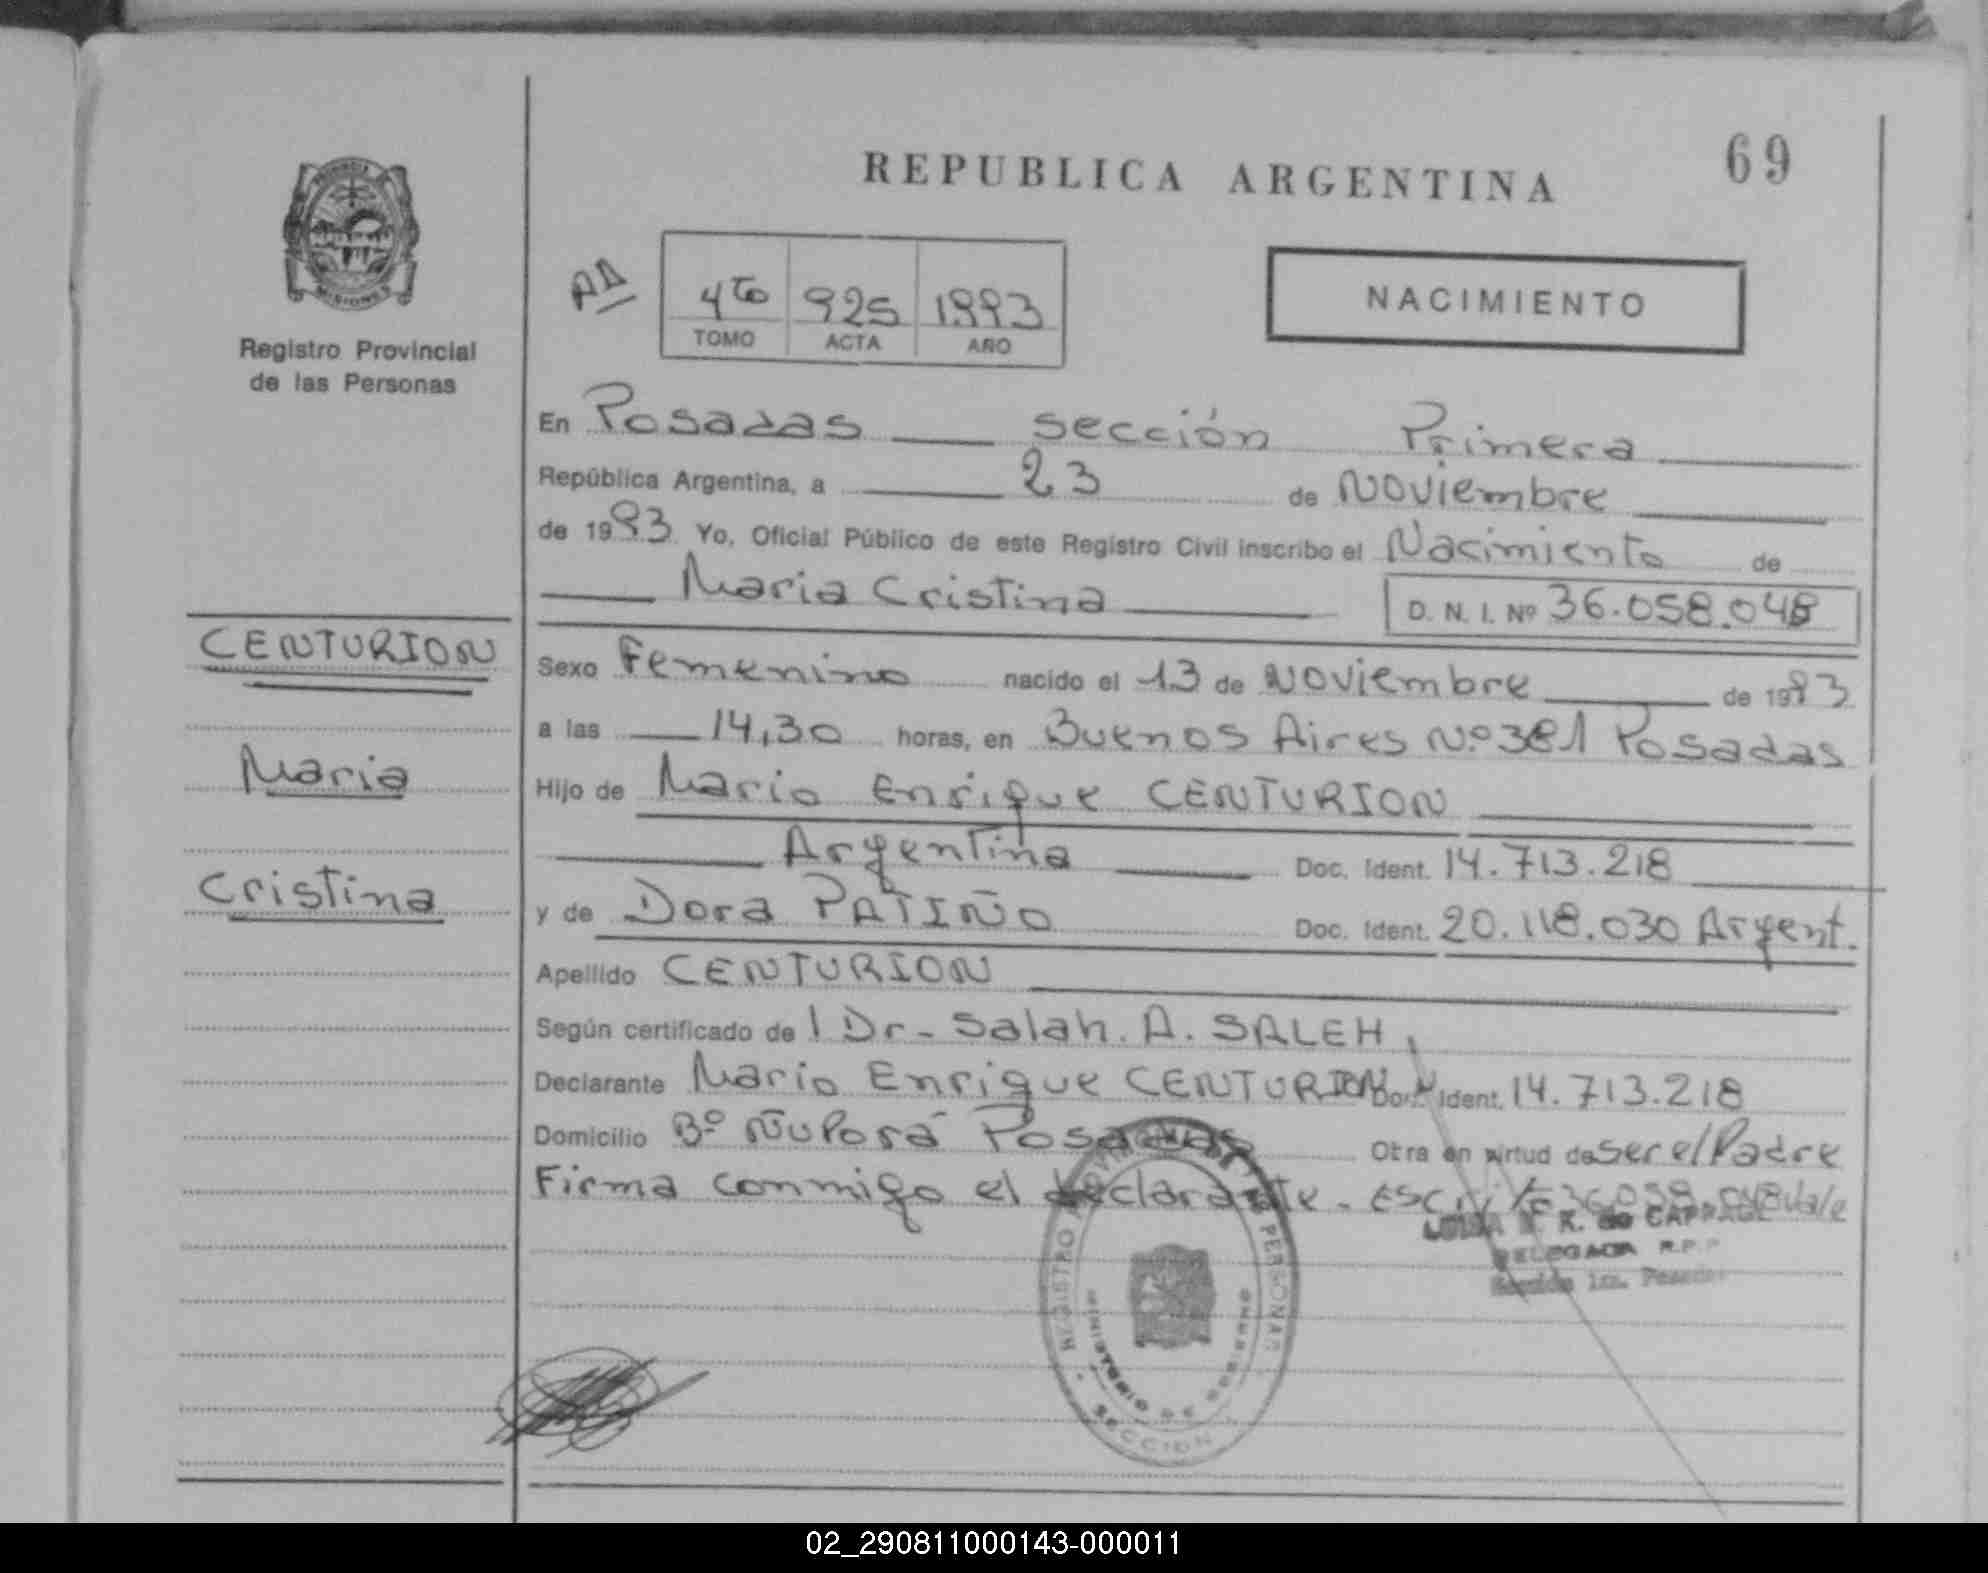 REPUBLICA ARGENTINA
69
PROVINCIA
MISIONES
Registro Provincial
de las Personas
AA
4to 925 1993
TOMO ACTA AÑO
NACIMIENTO
En Posadas sección Primera
República Argentina, a 23 de Noviembre
de 1993 Yo, Oficial Público de este Registro Civil inscribo el Nacimiento de
Maria Cristina D. N. I. Nº 36.058.048
CENTURION
Maria
Cristina
Sexo Femenino nacido el 13 de Noviembre de 1993
a las 14,30 horas, en Buenos Aires Nº 381 Posadas
Hijo de Mario Enrique CENTURION
Argentina Doc. Ident. 14.713.218
y de Dora PATIÑO Doc. Ident. 20.118.030 Argent.
Apellido CENTURION
Según certificado de l Dr. Salah. A. SALEH
Declarante Mario Enrique CENTURION Doc. Ident. 14.713.218
Domicilio Bº Ñu Porá Posadas Otra en virtud de ser el Padre
Firma conmigo el declarante. 36.058.048 Vale
K. de
DELEGADA R.P.P
Sección 1ra. Posadas
REGISTRO PERSONAS
MINISTERIO DE GOBIERNO
SECCION
02_290811000143-000011